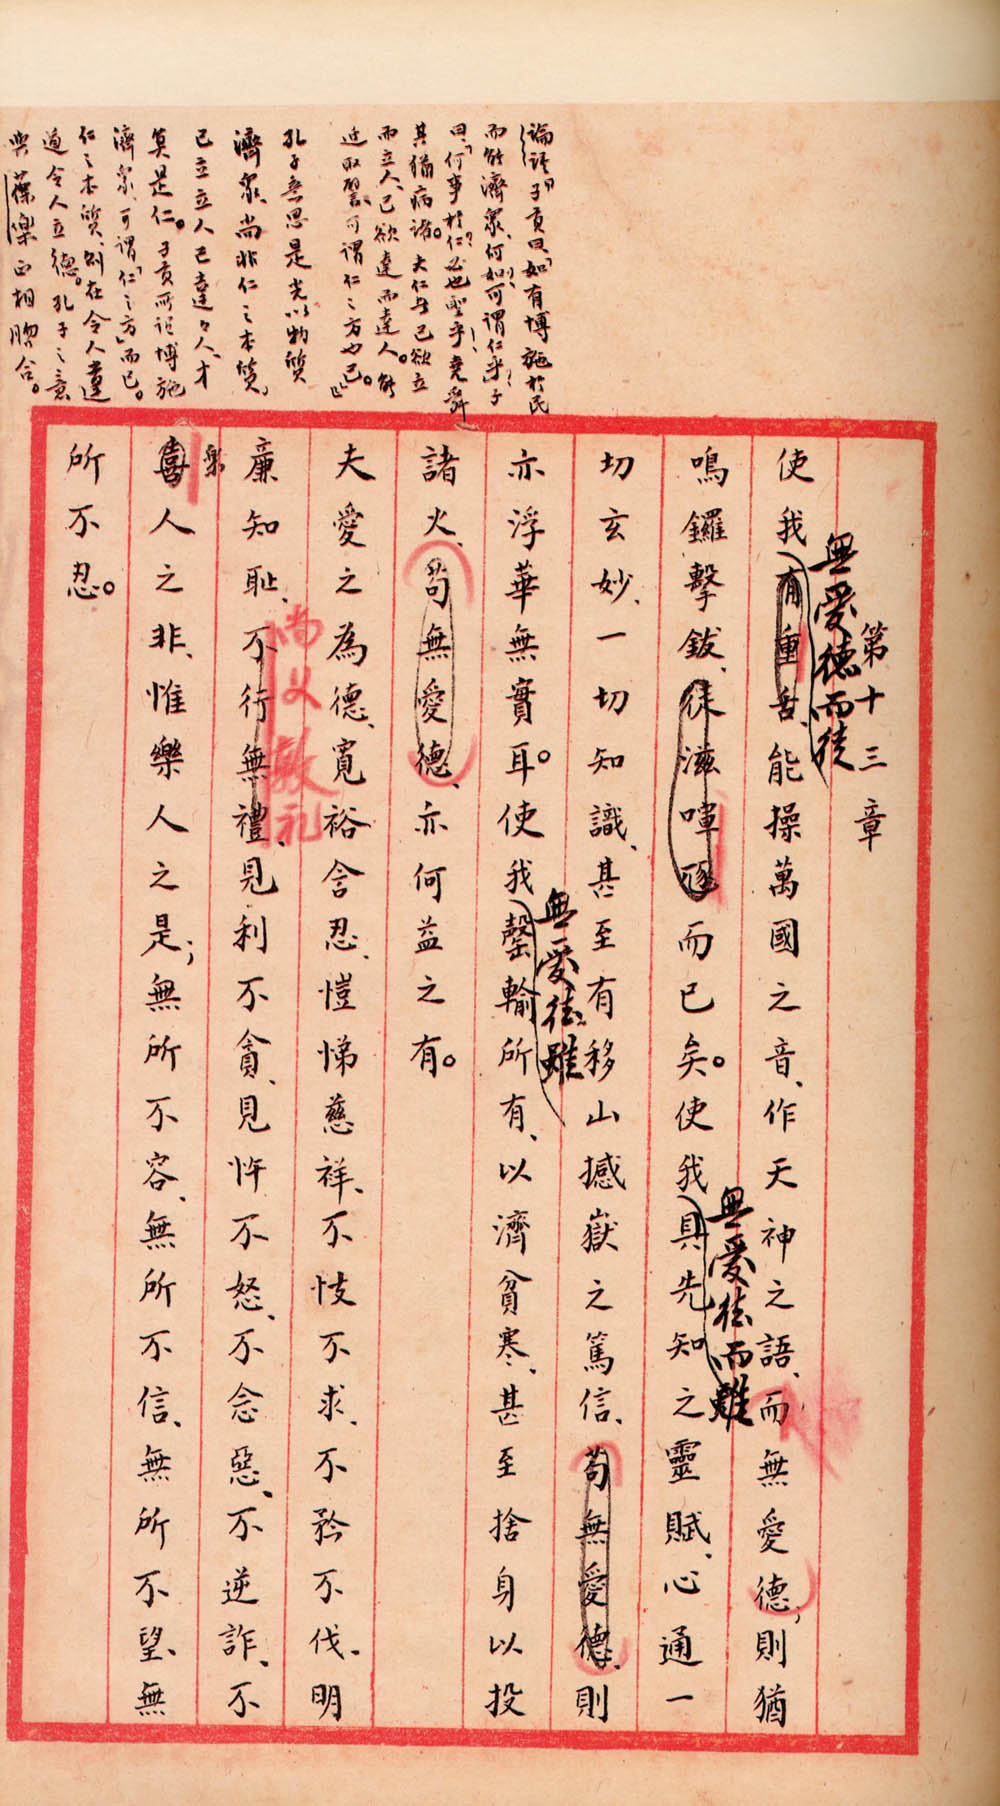 論語「子貢曰、「如有博施於民
而能濟眾、何如？可謂仁乎？」子
曰、「何事於仁？必也聖乎！堯舜
其猶病諸。夫仁者己欲立
而立人、己欲達而達人。能
近取譬、可謂仁之方也已。」』
孔子意思是光以物質
濟眾、尚非仁之本質、
己立立人己達達人、才
算是仁。子貢所説博施
濟眾、可謂「仁之方」而已。
仁之本質、則在令人達
道令人立德。孔子之意
與葆樂正相脗合。
第十三章
無愛德而徒
使我有重舌、能操萬國之音、作天神之語、而無愛德；則猶
鳴鑼擊鈸、徒滋喧豗而已矣。使我具先知之靈賦、心通一
無愛德而雖
切玄妙、一切知識、甚至有移山撼嶽之篤信、苟無愛德、則
亦浮華無實耳。使我罄輸所有、以濟貧寒、甚至捨身以投
無愛德、雖
諸火、苟無愛德、亦何益之有。
夫愛之為德、寬裕含忍、愷悌慈祥、不忮不求、不矜不伐、明
廉知恥、不行無禮、見利不貪、見忤不怒、不念惡、不逆詐、不
尚義敦礼
喜人之非、惟樂人之是；無所不容、無所不信、無所不望、無
樂
所不忍。